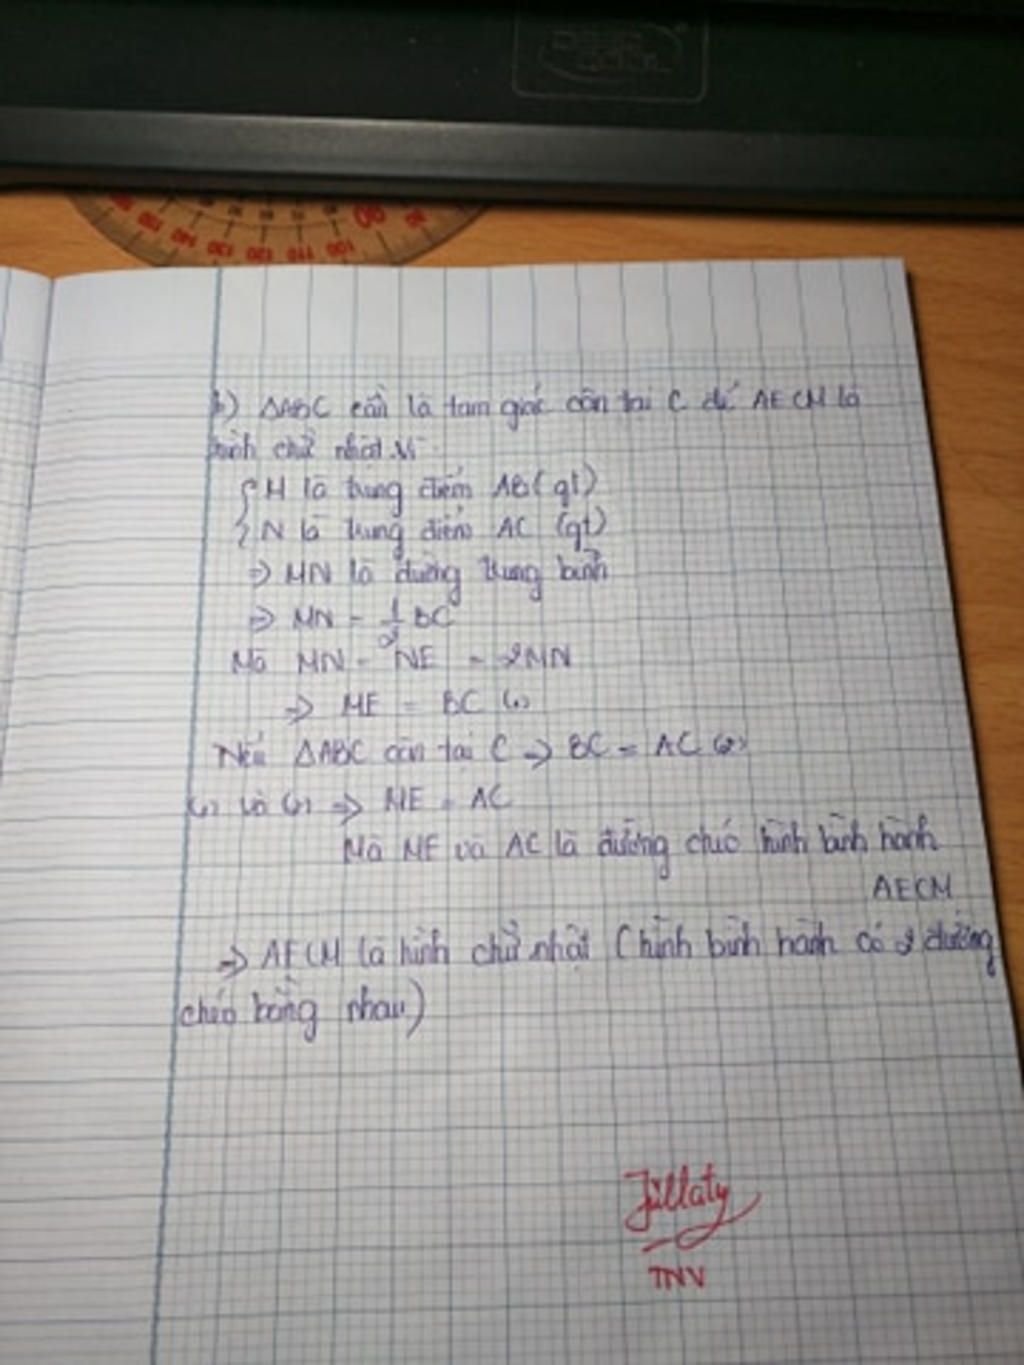 90
100 110 120 130 140 150
b) ΔABC cần là tam giác cân tại C để AECM là
hình chữ nhật. Vì
{ M là trung điểm AB (gt)
N là trung điểm AC (gt)
=> MN là đường trung bình
=> MN = 1/2 BC
Mà MN = NE = 2MN
=> ME = BC (1)
Nếu ΔABC cân tại C => BC = AC (2)
(1) và (2) => ME = AC
Mà ME và AC là đường chéo hình bình hành
AECM
=> AECM là hình chữ nhật (hình bình hành có 2 đường
chéo bằng nhau)
Jillaty
TNV